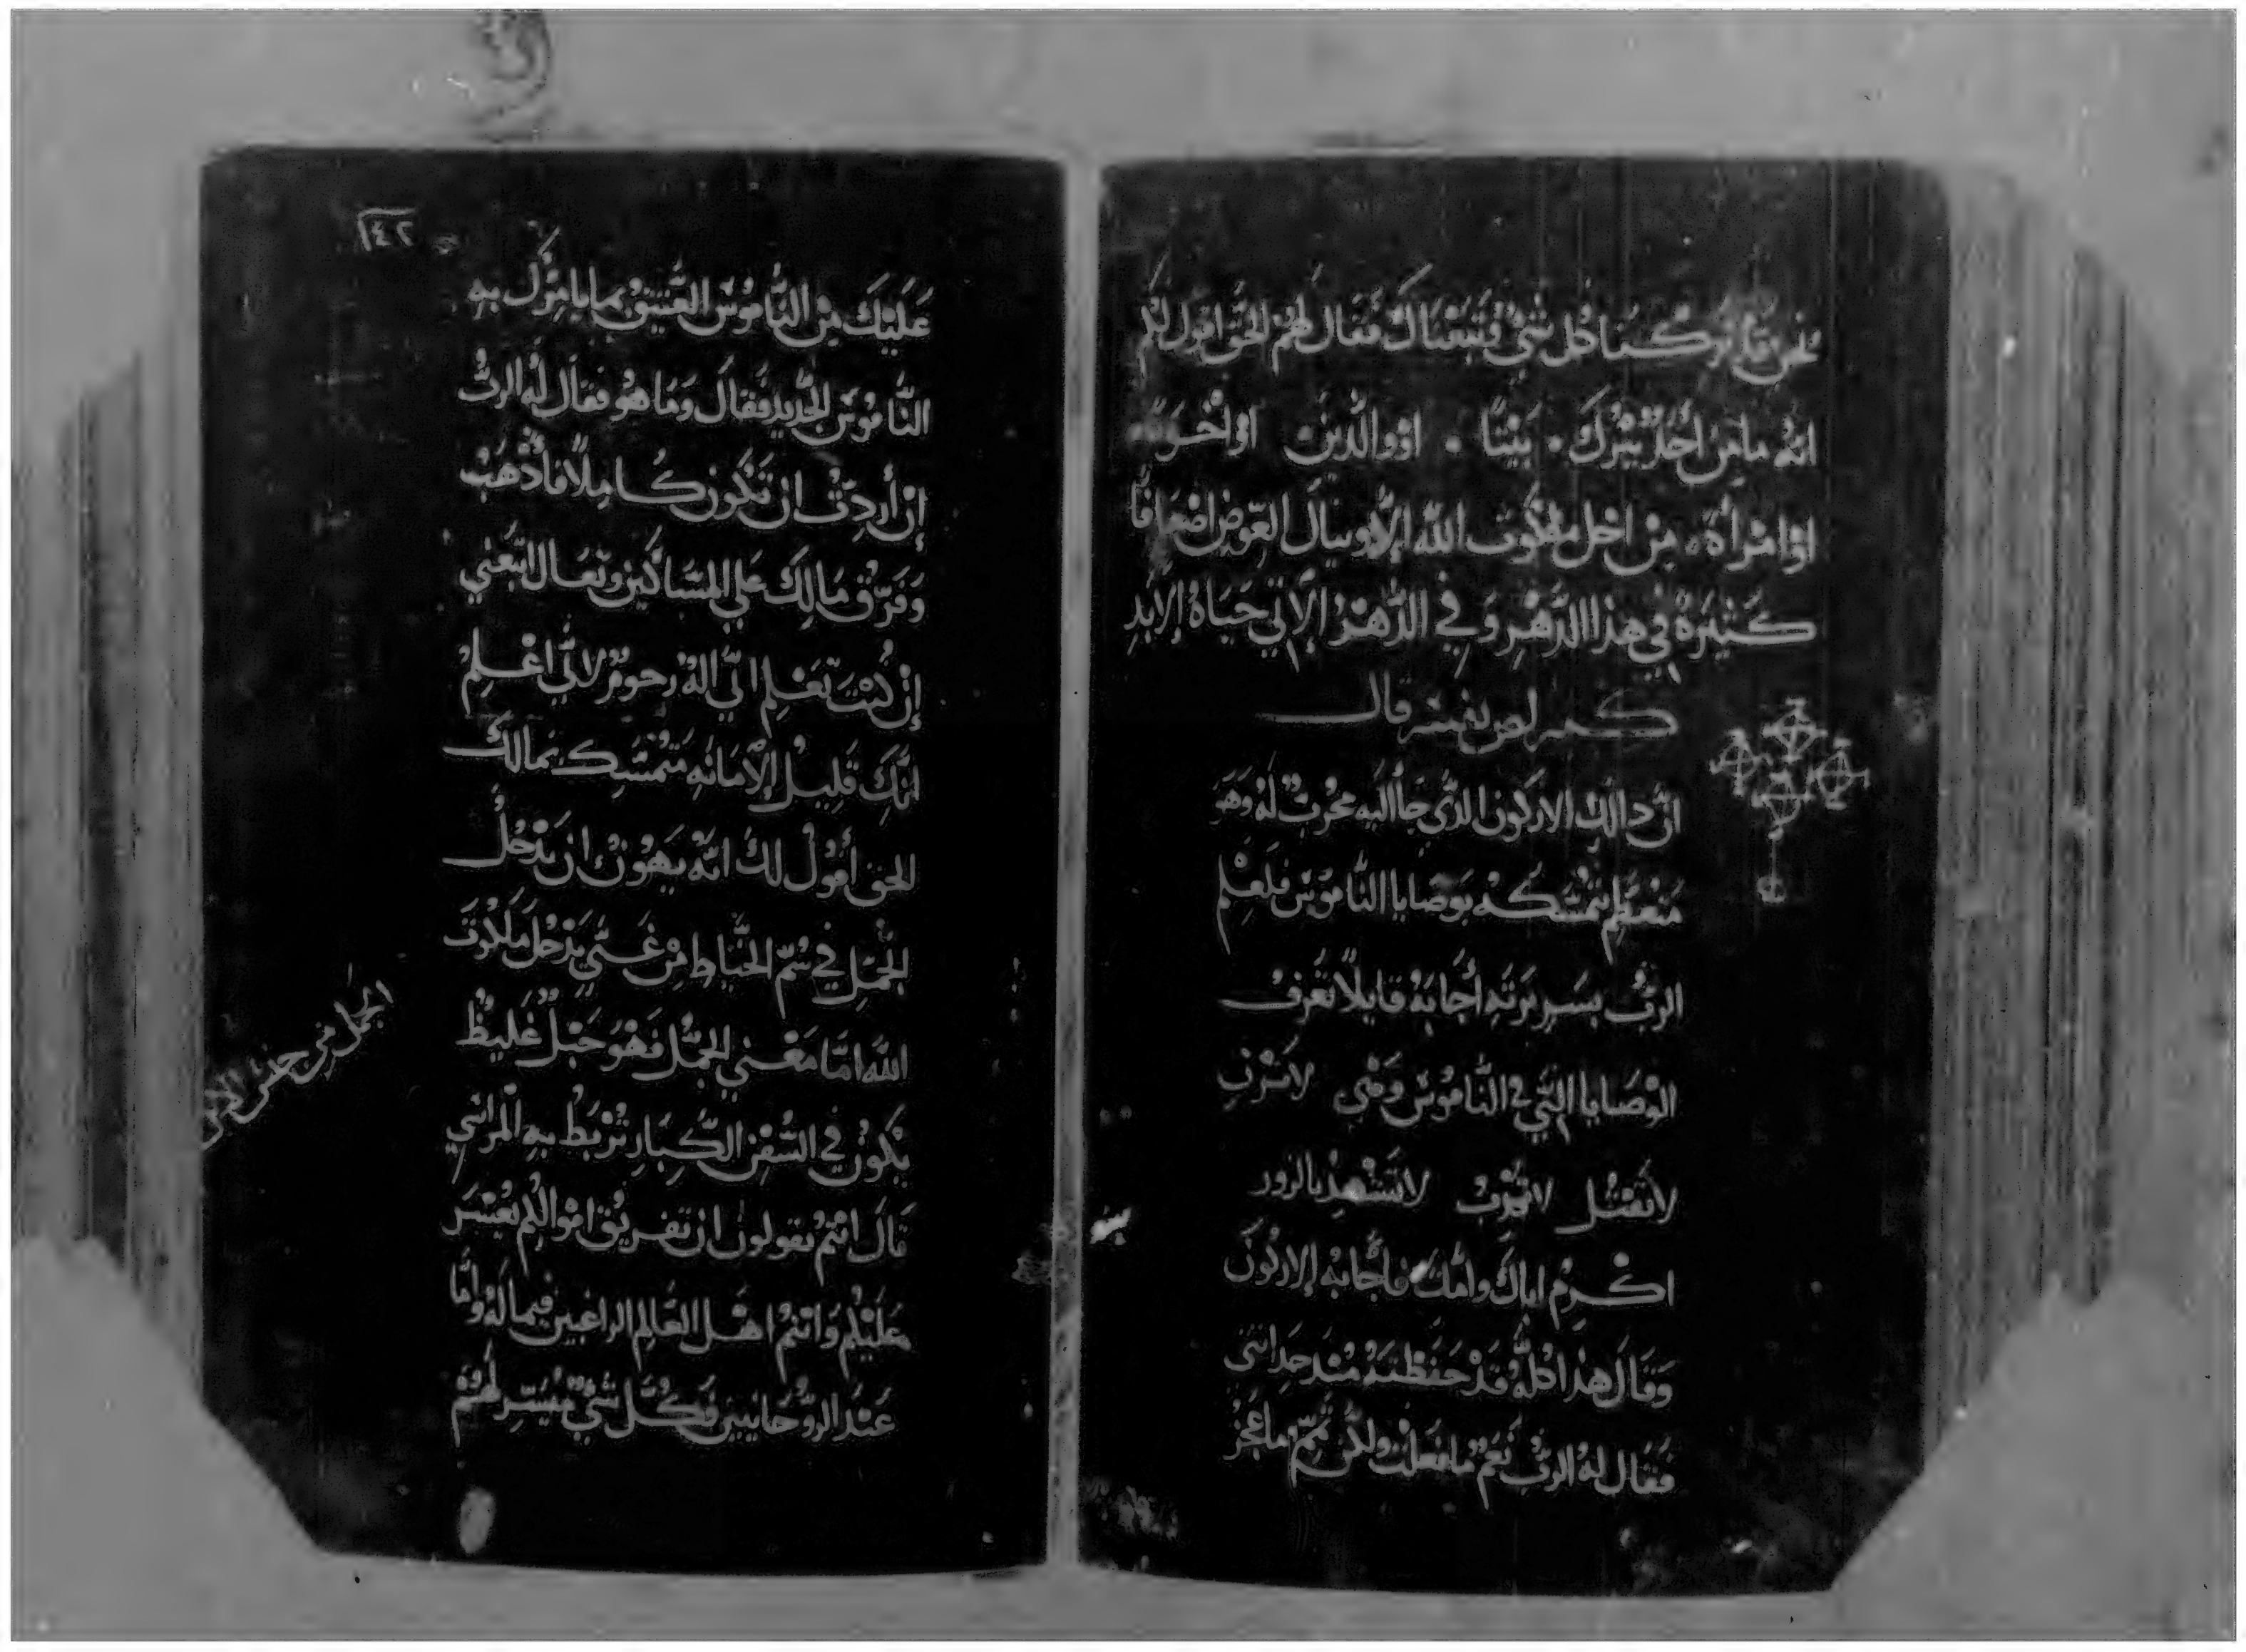 نحن قد تركنا كل شي وتبعناك فقال لهم الحق اقول لكم
انه ما من احد يترك ٠ بَيْتًا ٠ اوْ والدين اوْ اخْوَه
اوْ امْرأة ٠ مِنْ اجْل ملكوت الله إلا وينال العِوَض اضعافًا
كَثيرَةْ في هذا الدَّهْر وَفي الدَّهْرُ الاتي حَيَاةُ الابَدِ
قال
انَّ دالك الاركون الدى جا اليه مجرب لهُ وهَو
متمسكه بوَصَايا النامُوسْ فلعِلْم
الربُّ بسَريرَتهِ أجَابَهُ قايلاً تعرف
الوَصَايا التي في النامُوسْ وَهْي لا تَزْنِ
لا تَقتُل لا تسْرقْ لا تشهد بالزور
اكْرِمْ اباك وامك فأجابهُ الاركون
وَقالَ هذا كلُّهُ قدْ حَفظتهُ مُند حداثتى
فقالَ لهُ الربُّ نعَمْ ما فعَلت ولكن تمِّم ما عجز
١٤٢
عَليْكَ مِنْ النَّامُوسْ العَتيق بما يامرك بهِ
النَّامُوسْ الجديد فقالَ وَمَا هُو فقال لهُ الربُّ
إنْ أردتْ ان تكون كاملاً فاذهبْ
وَفرّقْ مَالكَ عَلي المَسَاكين وتعَال اتبَعْني
إنْ كُنْتَ تَعْلم انّي الهُ رحوم لاني اعْلم
انَّكَ قَلِيلْ الأمَانه متمسِّك بمالك
الحق أقُولْ لكَ انه يَهُونْ ان يَدْخُلْ
الجَمَل في سُمّ الخيّاط مِنْ غَنّي يَدْخُل مَلكوت
الله امّا مَعْني الجمل فهُوَ حَبْل غليظْ
يكونْ في السُّفْن الكِبَار تُرْبَطْ بهِ المَرَاسْي
قالَ انتمْ تقولون ان تفريق امْوالكم يعْسَر
عَليْكم وَانتمْ اهْل العَالم الراغبين فيما لهُ وَامّا
عَنْد الرُّوحَانيين فكُلّ شيْ مُيَسّر لهُمْ
الجمل من جنس